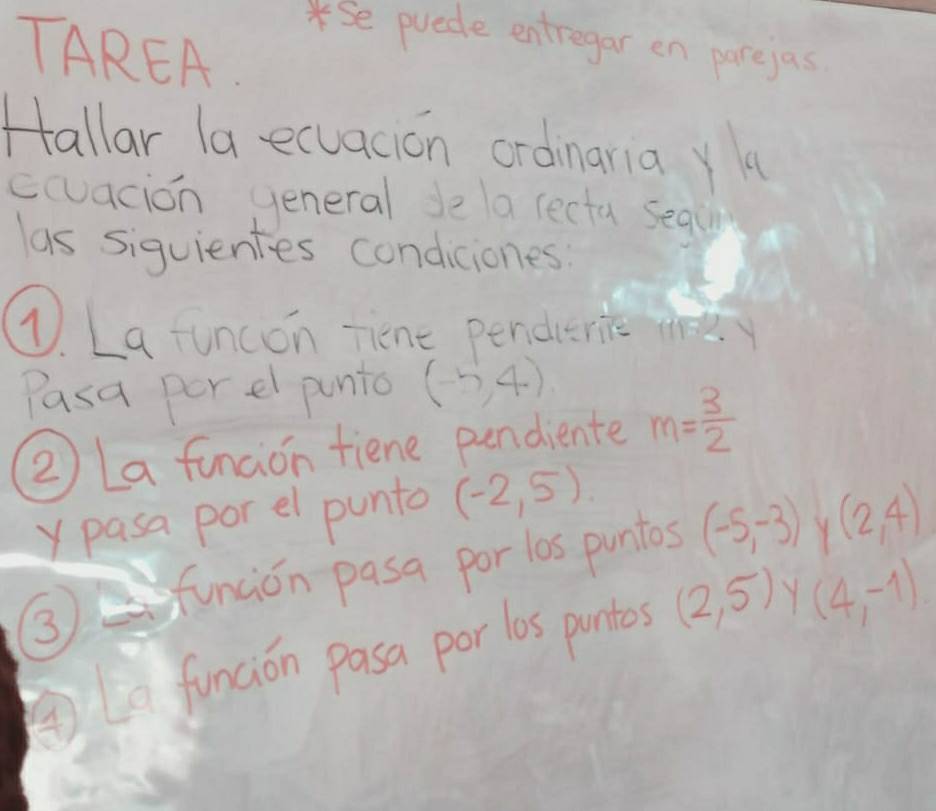 TAREA.
* Se puede entregar en parejas.
Hallar la ecuación ordinaria y la
ecuación general de la recta según
las siguientes condiciones:
①. La función tiene pendiente m=2. y
Pasa por el punto (-5,4).
② La función tiene pendiente m=3/2
y pasa por el punto (-2,5).
③ La función pasa por los puntos (-5,-3) y (2,4)
④ La función pasa por los puntos (2,5) y (4,-1).